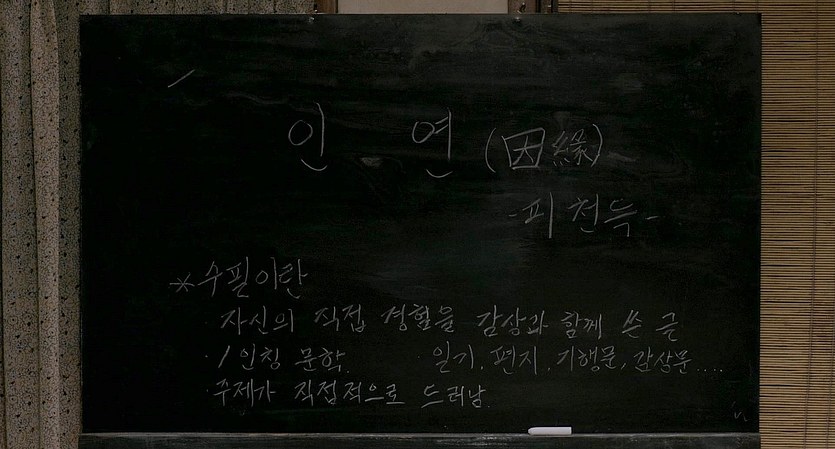 인 연 (因緣)
- 피 천 득 -
* 수필이란
자신의 직접 경험을 감상과 함께 쓴 글
· 1인칭 문학. 일기. 편지. 기행문, 감상문....
· 주제가 직접적으로 드러남.